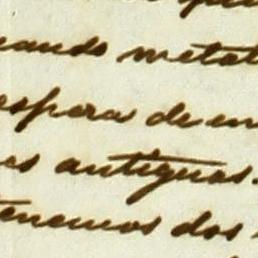 metal
espera de en
es antiguas.
tenemos dos